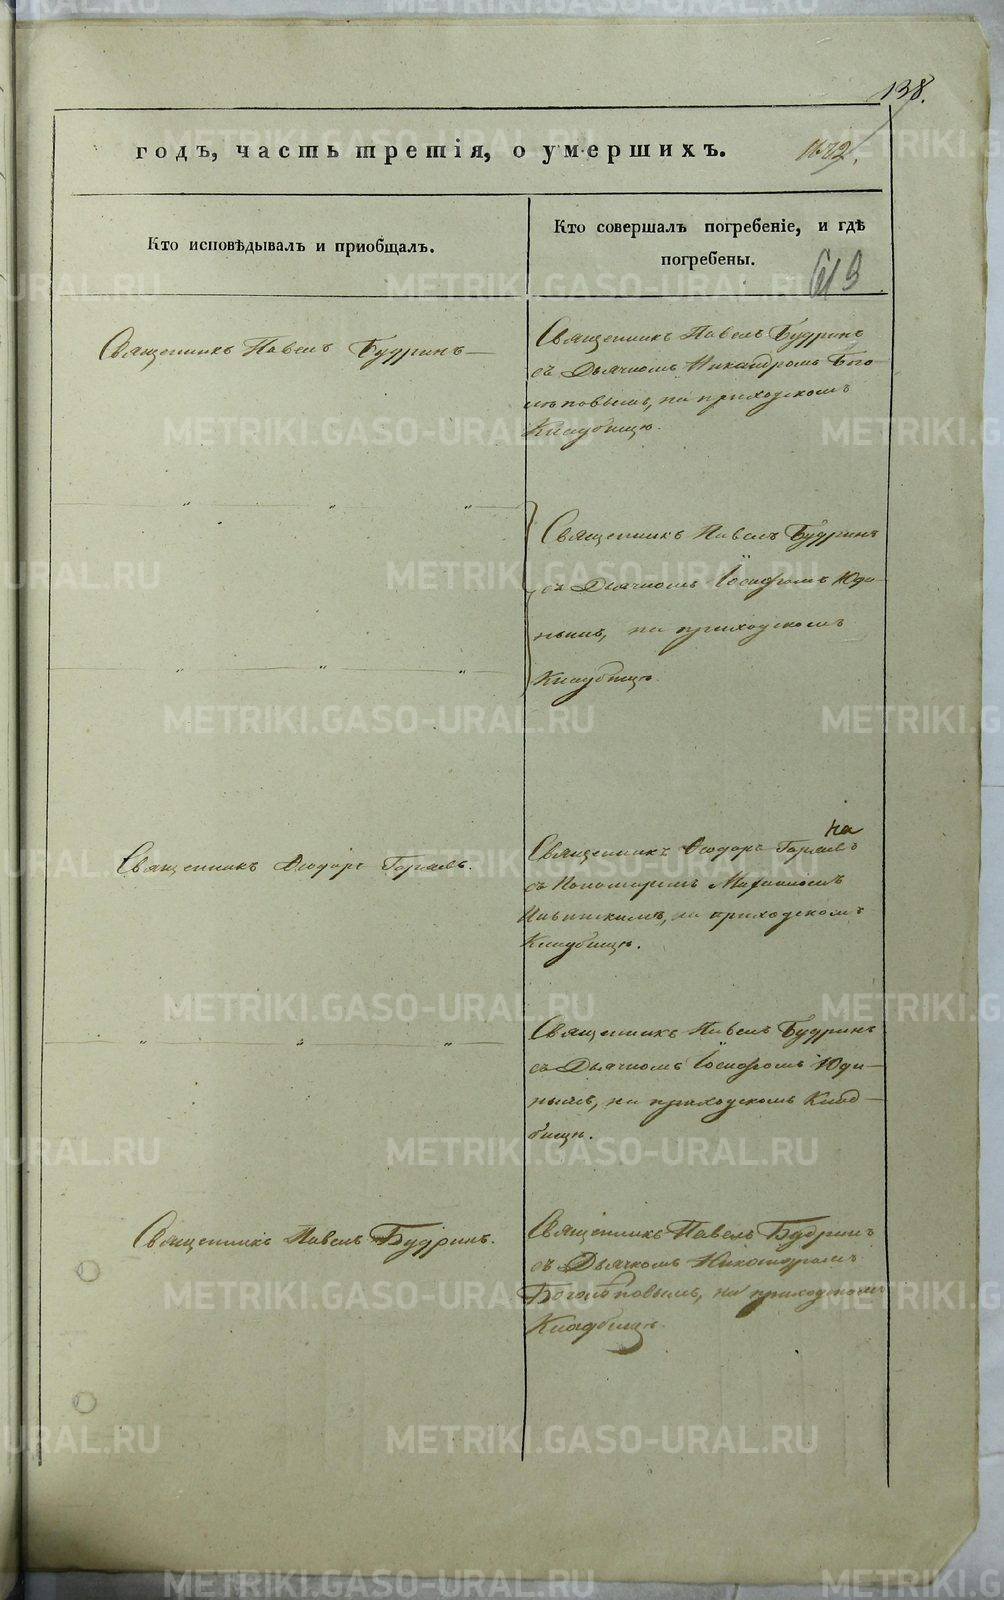 138.
годъ, часть третія, о умершихъ.
Кто исповѣдывалъ и пріобщалъ.
Кто совершалъ погребеніе, и гдѣ
погребены.
613
Священникъ Павелъ Будринъ
Священникъ Павелъ Будринъ
съ Дьячкомъ Никандромъ Бого
лѣповымъ, на приходскомъ
Кладбищѣ.
" " "
Священникъ Павелъ Будринъ
съ Дьячкомъ Іосифомъ Юди-
нымъ, на приходскомъ
Кладбищѣ.
" " "
Священникъ Ѳеодоръ
на
Священникъ Ѳеодоръ
съ Пономаремъ
на приходскомъ
Кладбищѣ.
" " "
Священникъ Павелъ Будринъ
съ Дьячкомъ Іосифомъ Юди-
нымъ, на приходскомъ Клад-
бищѣ.
Священникъ Павелъ Будринъ.
Священникъ Павелъ Будринъ
съ Дьячкомъ Никандромъ
Боголѣповымъ, на приходскомъ
Кладбищѣ.
METRIKI.GASO-URAL.RU